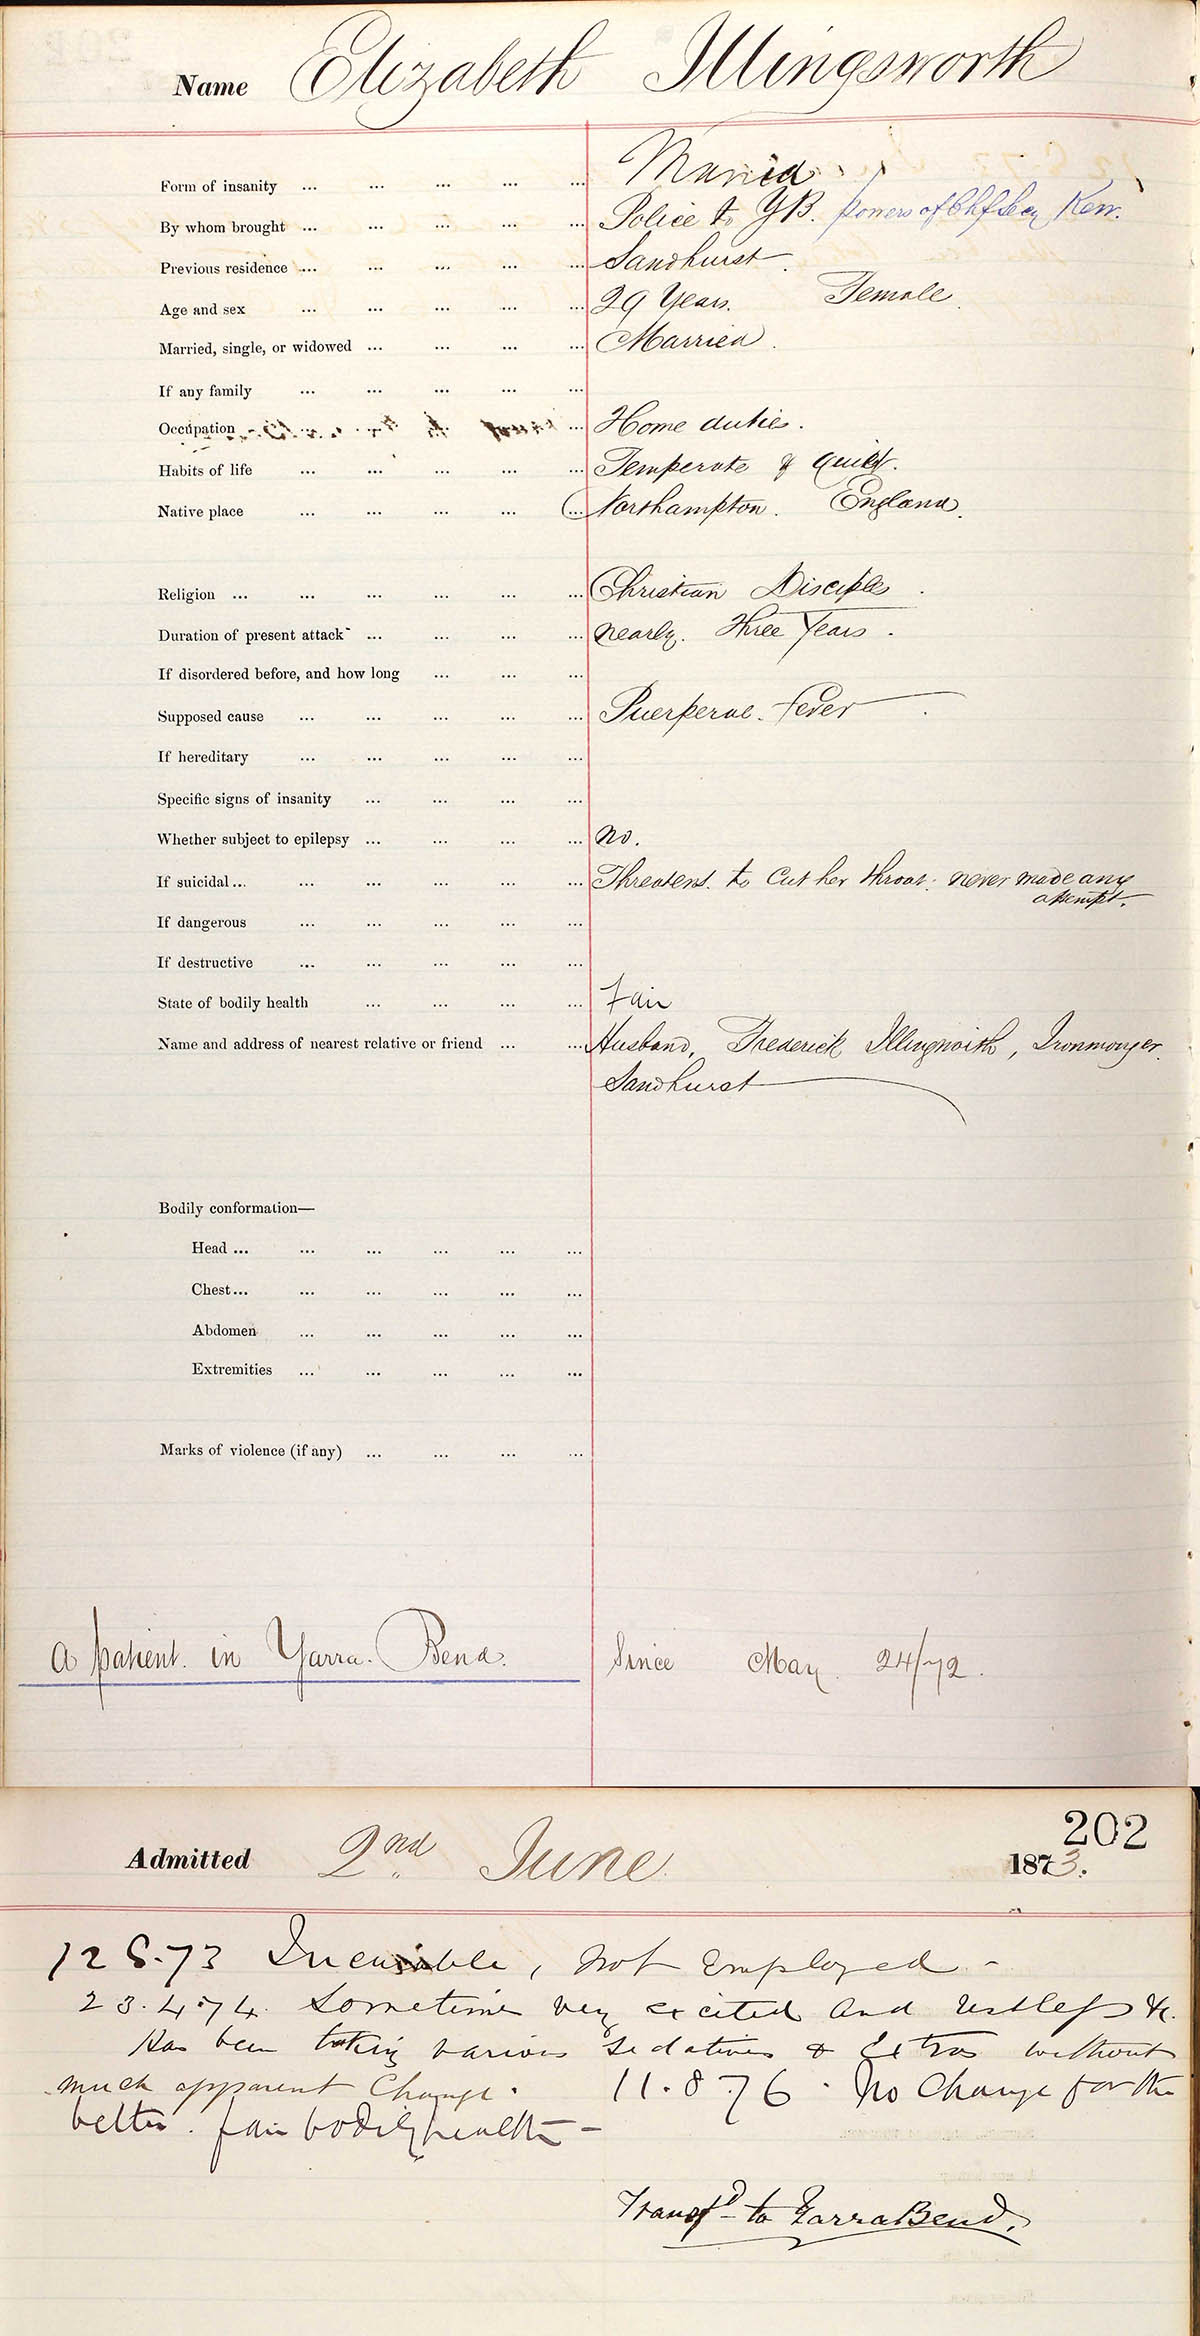 Name Elizabeth Illingsworth
Form of insanity ... ... ... ... ... Mania
By whom brought ... ... ... ... ... Police to YB. powers of Chf Secy Kew.
Previous residence ... ... ... ... ... Sandhurst
Age and sex ... ... ... ... ... 29 Years. Female
Married, single, or widowed ... ... ... ... Married.
If any family ... ... ... ... ...
Occupation ... Home duties.
Habits of life ... ... ... ... ... Temperate & quiet.
Native place ... ... ... ... ... Northampton. England.
Religion ... ... ... ... ... ... Christian Disciples.
Duration of present attack ... ... ... ... nearly. Three Years.
If disordered before, and how long ... ... ...
Supposed cause ... ... ... ... ... Puerperal. fever.
If hereditary ... ... ... ... ...
Specific signs of insanity ... ... ... ...
Whether subject to epilepsy ... ... ... ... no.
If suicidal ... ... ... ... ... ... Threatens. to Cut her throat. never made any
attempt.
If dangerous ... ... ... ... ...
If destructive ... ... ... ... ...
State of bodily health ... ... ... ... Fair
Name and address of nearest relative or friend ... ... Husband, Frederick Illingworth, Ironmonger.
Sandhurst
Bodily conformation—
Head ... ... ... ... ... ...
Chest ... ... ... ... ... ...
Abdomen ... ... ... ... ...
Extremities ... ... ... ... ...
Marks of violence (if any) ... ... ... ...
a patient. in Yarra. Bend. Since May. 24/72.
202
Admitted 2nd June 1873.
12 8.73 Incurable, not employed -
23.4.74. Sometimes very excited and restless &c.
Has been taking various sedatives & Extras without
much apparent Change. 11.8.76. No Change for the
better. fair bodily health -
Transfd to Yarra Bend.